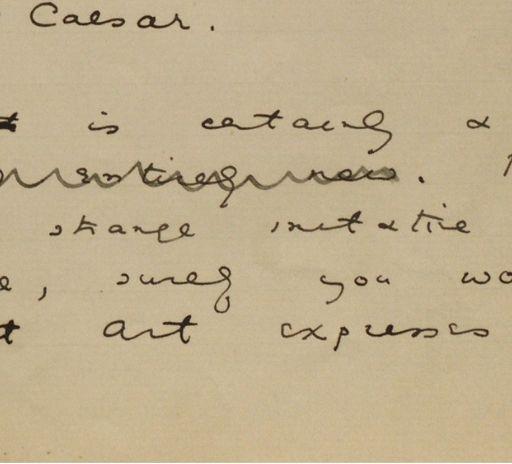 Caesar.
is certainly a
entirely new.
strange imitative
, surely you wo
art expresses